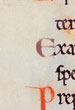 ter
Exa
spe
pre